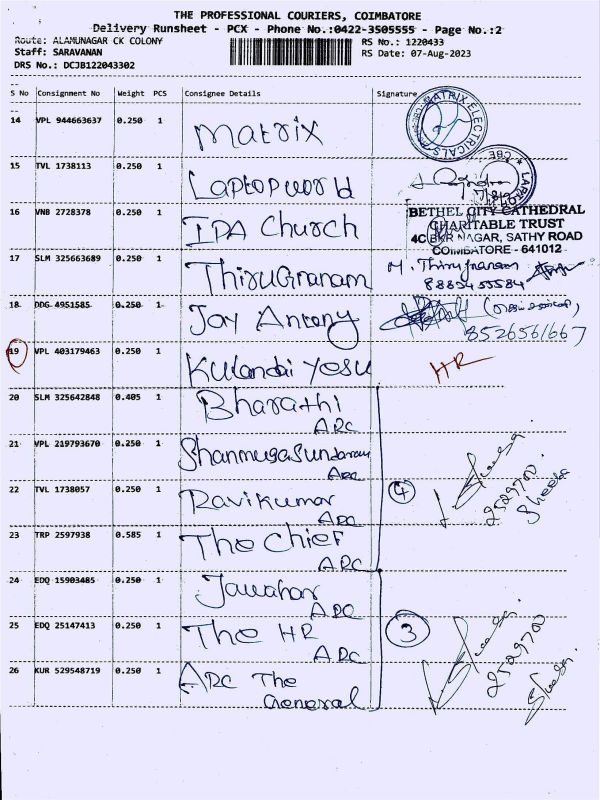 THE PROFESSIONAL COURIERS, COIMBATORE
Delivery Runsheet - PCX - Phone No.:0422-3505555 - Page No.:2
Route: ALAMUNAGAR CK COLONY
RS No.: 1220433
Staff: SARAVANAN
RS Date: 07-Aug-2023
DRS No.: DCJB122043302
S No Consignment No Weight PCS Consignee Details Signature
14 VPL 944663637 0.250 1 Matrix
MATRIX ELECTRICALS
15 TVL 1738113 0.250 1 Laptop world
16 VNB 2728378 0.250 1 IPA Church
BETHEL CITY CATHEDRAL
CHARITABLE TRUST
4C BKR NAGAR, SATHY ROAD
COIMBATORE - 641012
17 SLM 325663689 0.250 1 ThiruGnanam
M. Thirugnanam
8883455584
18 DDG 4951585 0.250 1 Joy Antony
8526561667
19 VPL 403179463 0.250 1 Kulandai Yesu HR
20 SLM 325642848 0.405 1 Bharathi
ARC
21 VPL 219793670 0.250 1 Shanmugasundaram
ARC
22 TVL 1738057 0.250 1 Ravikumar 4
ARC
2529700
Sheeba
23 TRP 2597938 0.585 1 The Chief
ARC
24 EDQ 15903485 0.250 1 Jawahar
ARC
25 EDQ 25147413 0.250 1 The HR 3
ARC
2529700
26 KUR 529548719 0.250 1 ARC The
General